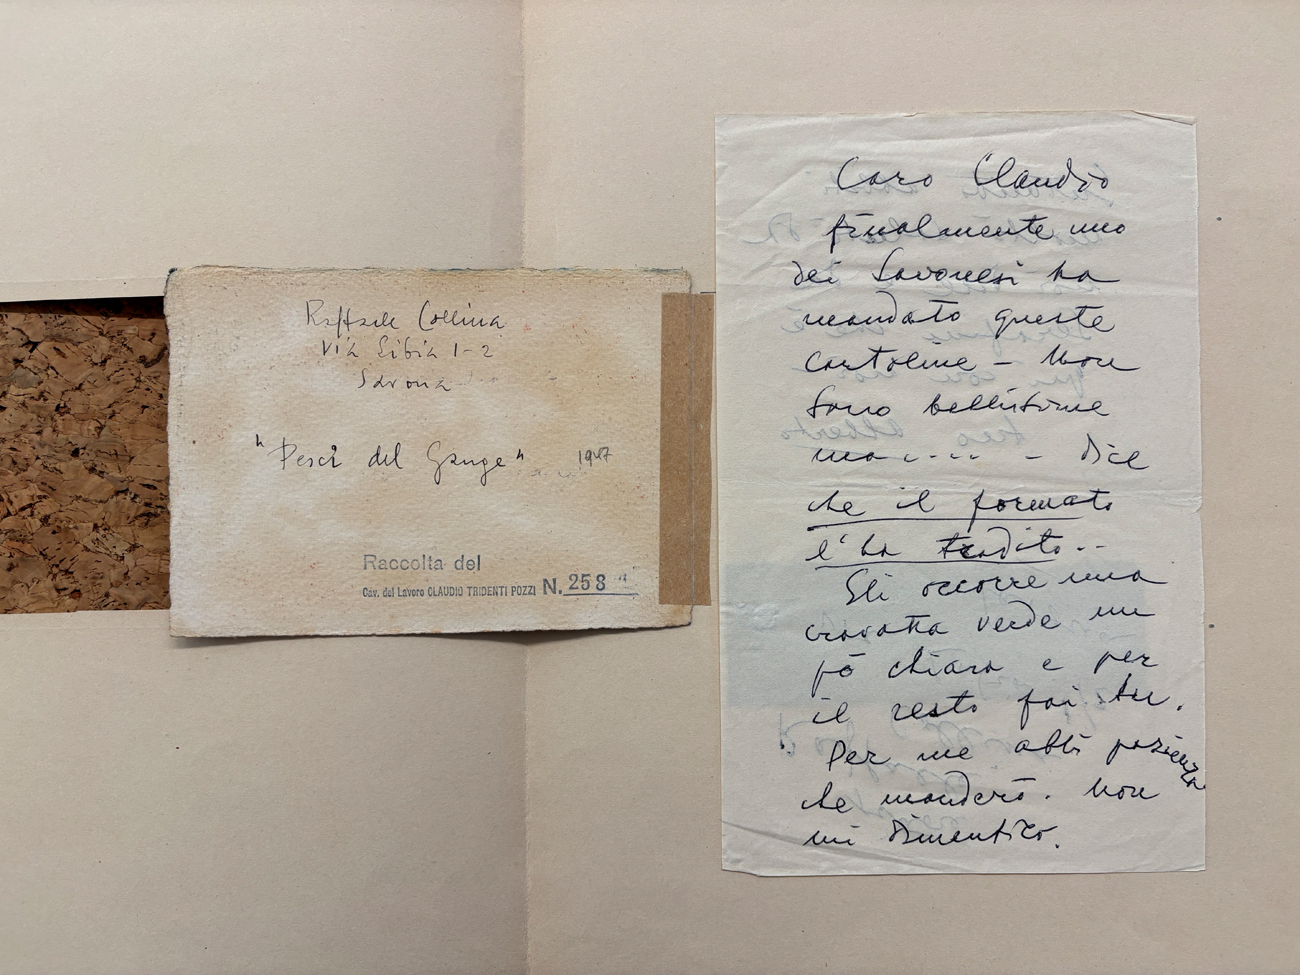 Raffaele Collina
Via Libia 1-2
Savona
"Pesci del Gange" 1947
Raccolta del
Cav. del Lavoro CLAUDIO TRIDENTI POZZI N. 258
Caro Claudio
finalmente uno
dei Savonesi ha
mandato queste
cartoline - Non
sono bellissime
ma..... - Dice
che il formato
l'ha tradito..
Gli occorre una
cravatta verde un
pò chiara e per
il resto fai tu.
Per me abbi pazienza
che manderò. Non
mi dimentico.